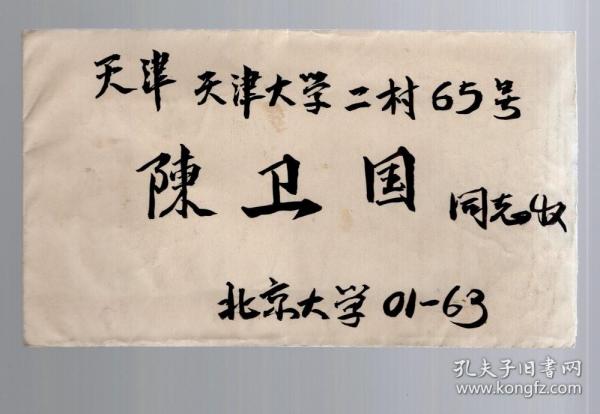 天津 天津大学二村65号
陳卫国 同志收
北京大学 01-63
孔夫子旧書网
www.kongfz.com